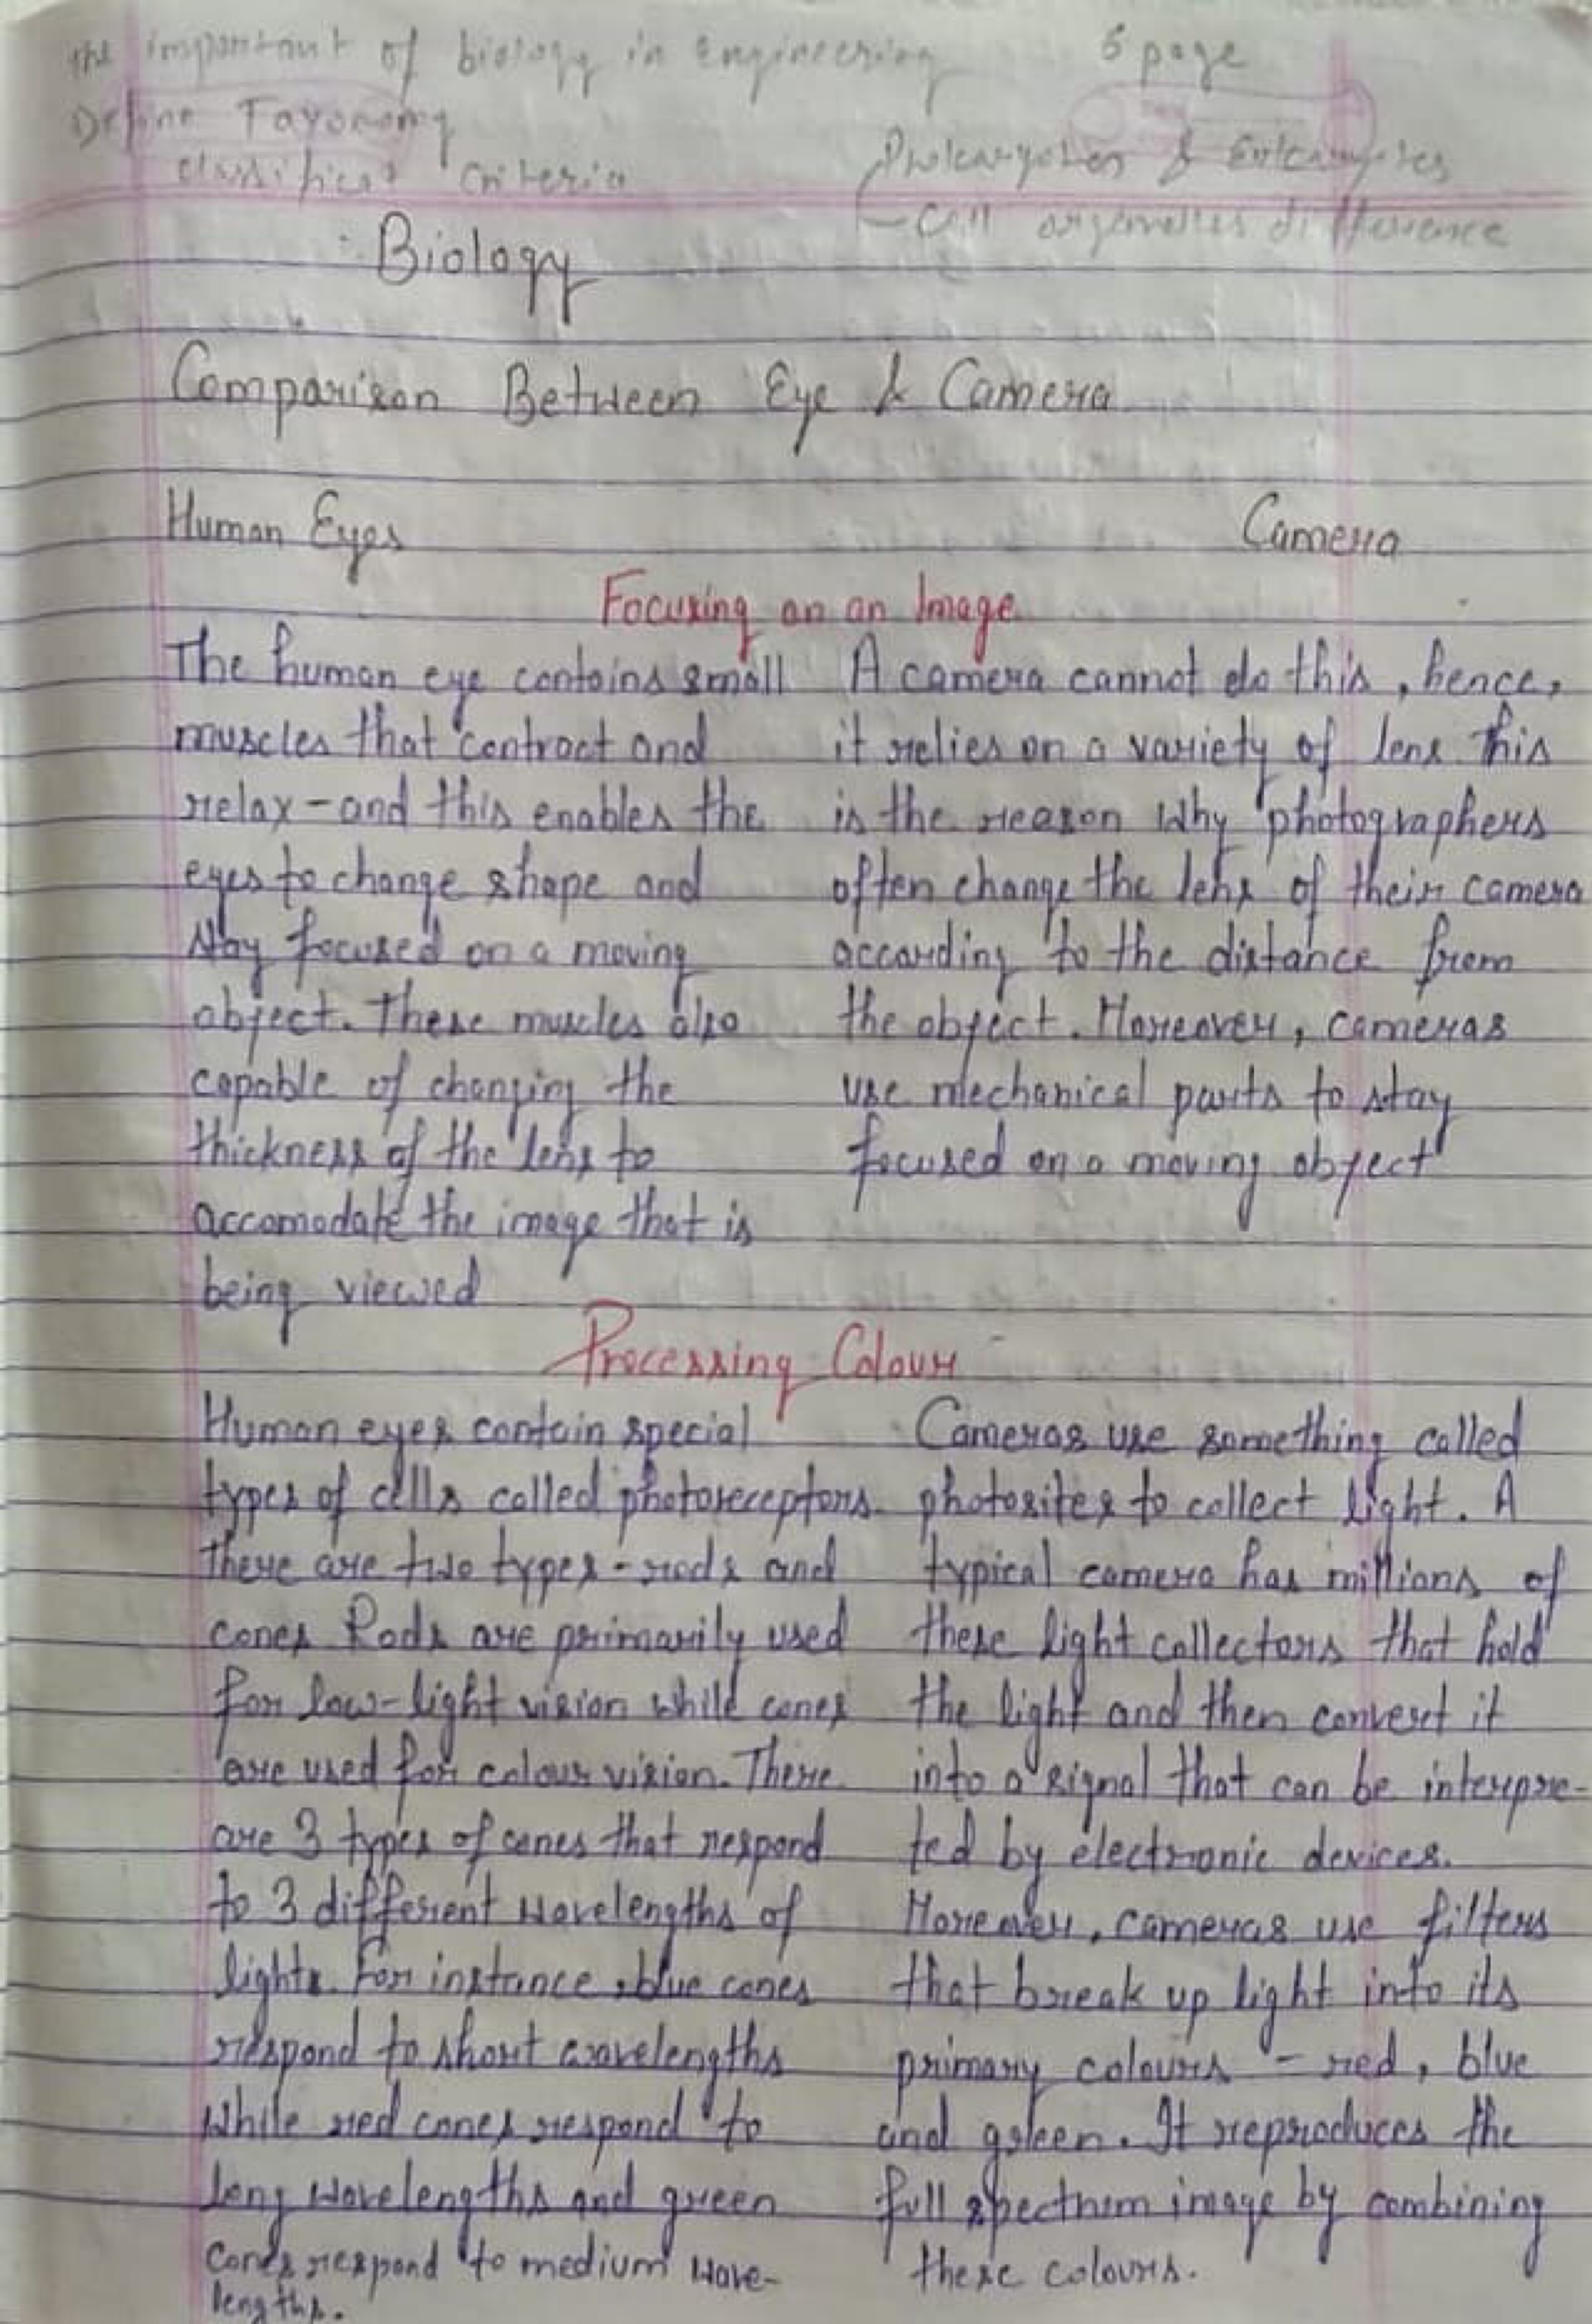 the important of biology in engineering 5 page
Define Taxonomy
classificat criteria
Prokaryotes & Eukaryotes
- Cell organelles difference
Biology
Comparison Between Eye & Camera
Human Eyes
Camera
Focusing on an Image
The human eye contains small
muscles that contract and
relax - and this enables the
eyes to change shape and
stay focused on a moving
object. These muscles also
capable of changing the
thickness of the lens to
accomodate the image that is
being viewed
A camera cannot do this, hence,
it relies on a variety of lens this
is the reason why photographers
often change the lens of their camera
according to the distance from
the object. Moreover, cameras
use mechanical parts to stay
focused on a moving object
Processing Colour
Human eyes contain special
types of cells called photoreceptors.
There are two types - rods and
cones Rods are primarily used
for low-light vision while cones
are used for colour vision. There
are 3 types of cones that respond
to 3 different wavelengths of
lights. For instance, blue cones
respond to short wavelengths
while red cones respond to
long wavelengths and green
cones respond to medium wave-
lengths.
Cameras use something called
photosites to collect light. A
typical camera has millions of
these light collectors that hold
the light and then convert it
into a signal that can be interpre-
ted by electronic devices.
Moreover, cameras use filters
that break up light into its
primary colours - red, blue
and green. It reproduces the
full spectrum image by combining
these colours.